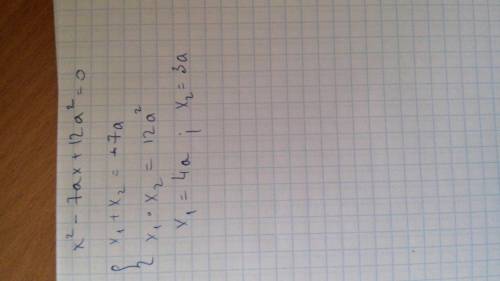 x² - 7ax + 12a² = 0
{ x₁ + x₂ = +7a
x₁ · x₂ = 12a²
x₁ = 4a ; x₂ = 3a